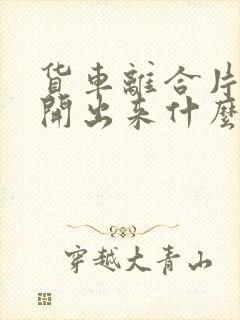 货車離合片
開出来什麽
穿越大青山